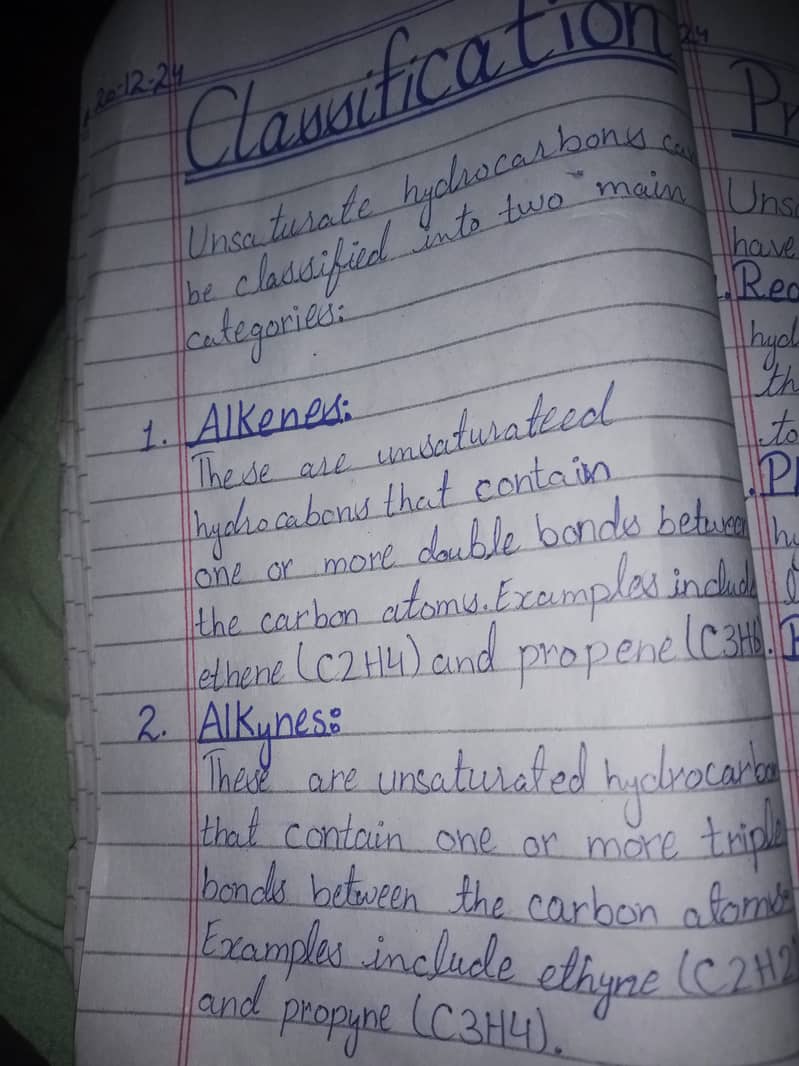 20-12-24
Classification
Unsaturate hydrocarbons can
be classified into two main
categories:
1. Alkenes:
These are unsaturateed
hydrocabons that contain
one or more double bonds between
the carbon atoms. Examples include
ethene (C2H4) and propene (C3H6).
2. Alkynes:
These are unsaturated hydrocarbon
that contain one or more triple
bonds between the carbon atoms
Examples include ethyne (C2H2
and propyne (C3H4).
24
Pr
Unsa
have
Rea
hyd
th
to